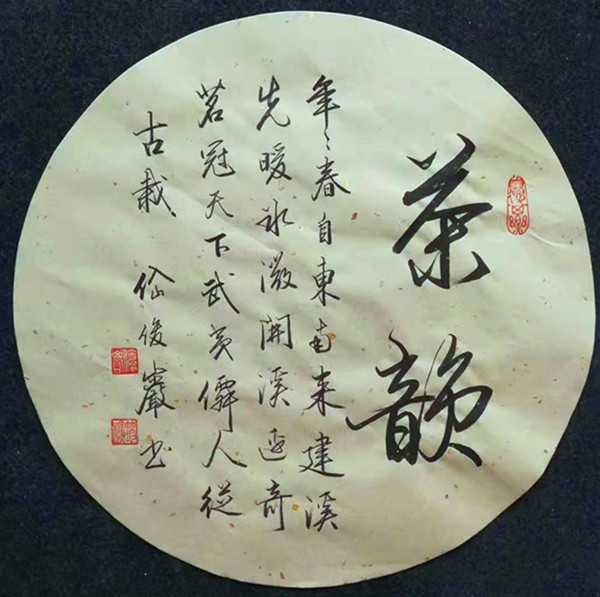 茶韻
年々春自東南来建溪
先暖氷微開溪邊奇
茗冠天下武夷僊人從
古栽
俊巖书